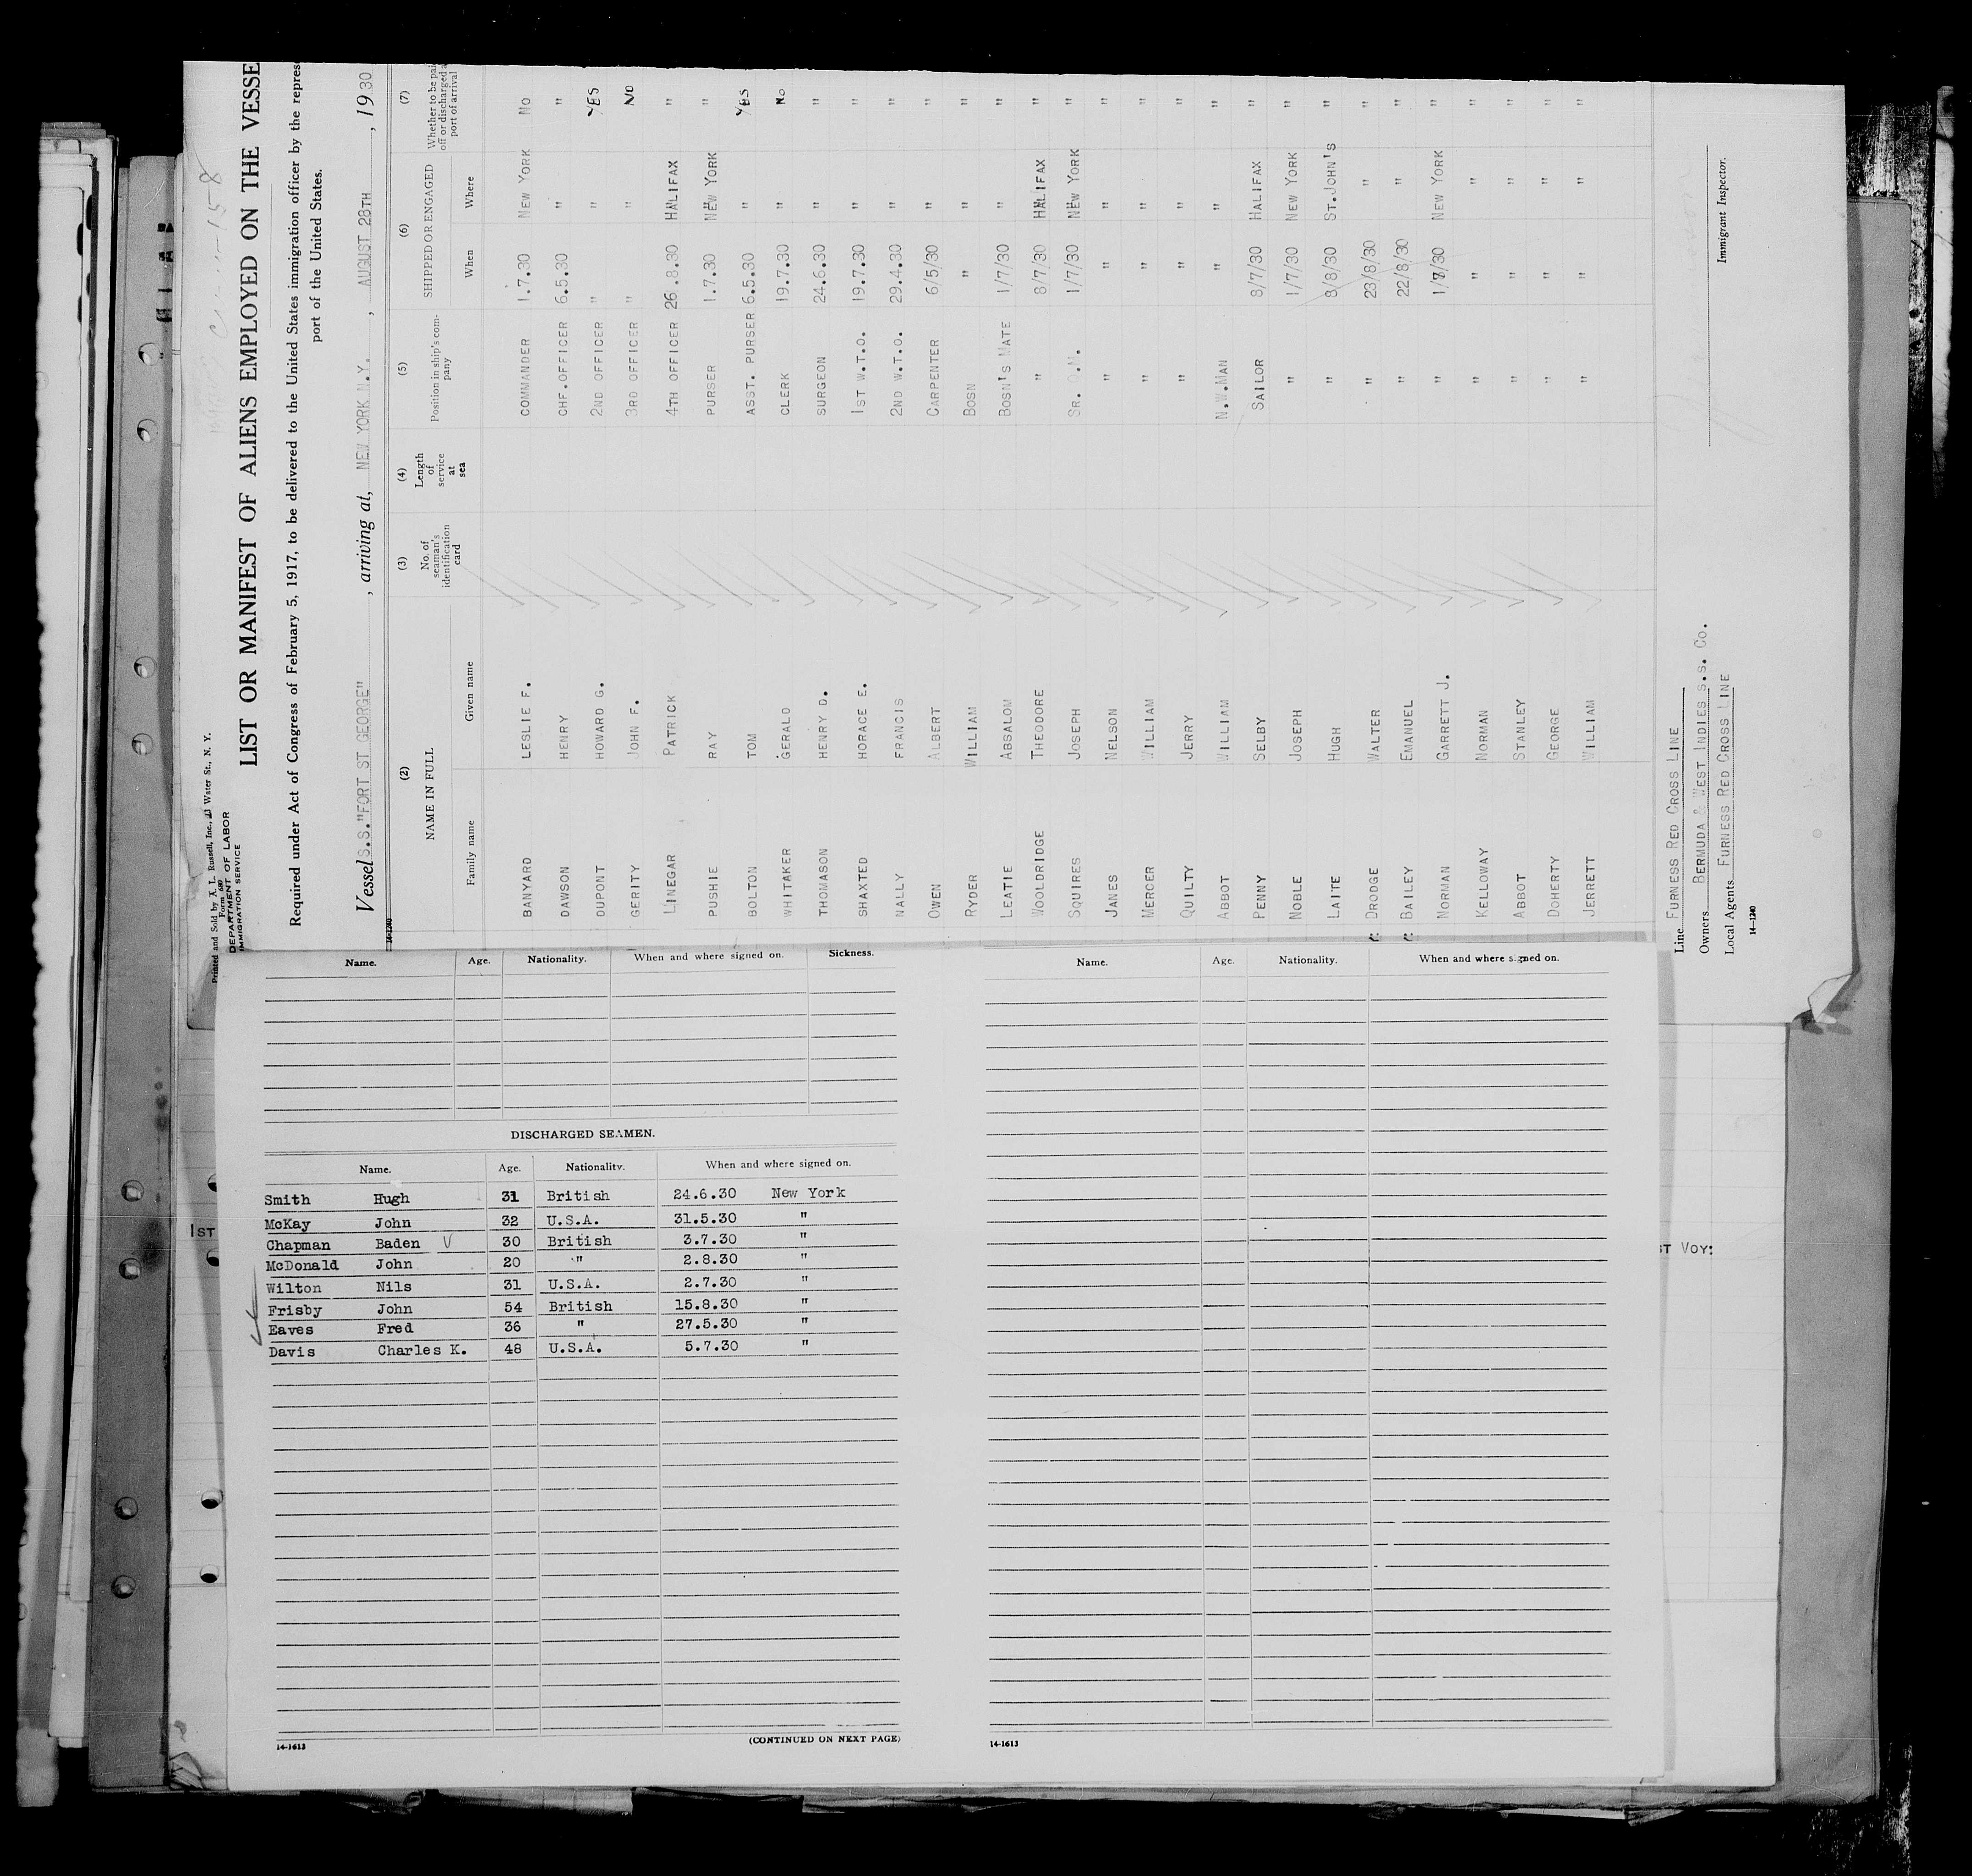 Printed and Sold by A. L. Russell, Inc., 23 Water St., N. Y.
Form 680
DEPARTMENT OF LABOR
IMMIGRATION SERVICE
LIST OR MANIFEST OF ALIENS EMPLOYED ON THE VESSE
Required under Act of Congress of February 5, 1917, to be delivered to the United States immigration officer by the represe
port of the United States.
Vessel S.S."FORT ST GEORGE" , arriving at, NEW YORK N.Y. , AUGUST 28TH , 1930
14-1240
(2) (3) (4) (5) (6) (7)
NAME IN FULL No. of seaman's identification card Length of service at sea Position in ship's company SHIPPED OR ENGAGED Whether to be paid off or discharged a port of arrival
Family name Given name When Where
BANYARD LESLIE F. COMMANDER 1.7.30 NEW YORK No
DAWSON HENRY CHF.OFFICER 6.5.30 " "
DUPONT HOWARD G. 2ND OFFICER " " YES
GERITY JOHN F. 3RD OFFICER " " NO
LINEGAR PATRICK 4TH OFFICER 26.8.30 HALIFAX "
PUSHIE RAY PURSER 1.7.30 NEW YORK "
BOLTON TOM ASST. PURSER 6.5.30 " YES
WHITAKER GERALD CLERK 19.7.30 " No
THOMASON HENRY D. SURGEON 24.6.30 " "
SHAXTED HORACE E. 1ST W.T.O. 19.7.30 " "
NALLY FRANCIS 2ND W.T.O. 29.4.30 " "
OWEN ALBERT CARPENTER 6/5/30 " "
RYDER WILLIAM BOSN " " "
LEATIE ABSALOM BOSN'S MATE 1/7/30 " "
WOOLDRIDGE THEODORE " 8/7/30 HALIFAX "
SQUIRES JOSEPH SR. Q.M. 1/7/30 NEW YORK "
JANES NELSON " " " "
MERCER WILLIAM " " " "
QUILTY JERRY " " " "
ABBOT WILLIAM N.W.MAN " " "
PENNY SELBY SAILOR 8/7/30 HALIFAX "
NOBLE JOSEPH " 1/7/30 NEW YORK "
LAITE HUGH " 8/8/30 ST.JOHN'S "
DRODGE WALTER " 23/8/30 " "
BAILEY EMANUEL " 22/8/30 " "
NORMAN GARRETT J. " 1/7/30 NEW YORK "
KELLOWAY NORMAN " " " "
ABBOT STANLEY " " " "
DOHERTY GEORGE " " " "
JERRETT WILLIAM " " " "
Line FURNESS RED CROSS LINE
Owners BERMUDA & WEST INDIES S.S. CO.
Local Agents FURNESS RED CROSS LINE
Immigrant Inspector.
14-1240
Name. Age. Nationality. When and where signed on. Sickness.
DISCHARGED SEAMEN.
Name. Age. Nationality. When and where signed on.
Smith Hugh 31 British 24.6.30 New York
McKay John 32 U.S.A. 31.5.30 "
Chapman Baden V 30 British 3.7.30 "
McDonald John 20 " 2.8.30 "
Wilton Nils 31 U.S.A. 2.7.30 "
Frisby John 54 British 15.8.30 "
Eaves Fred 36 " 27.5.30 "
Davis Charles K. 48 U.S.A. 5.7.30 "
14-1613
(CONTINUED ON NEXT PAGE)
Name. Age. Nationality. When and where signed on.
14-1613
1ST
ST VOY: